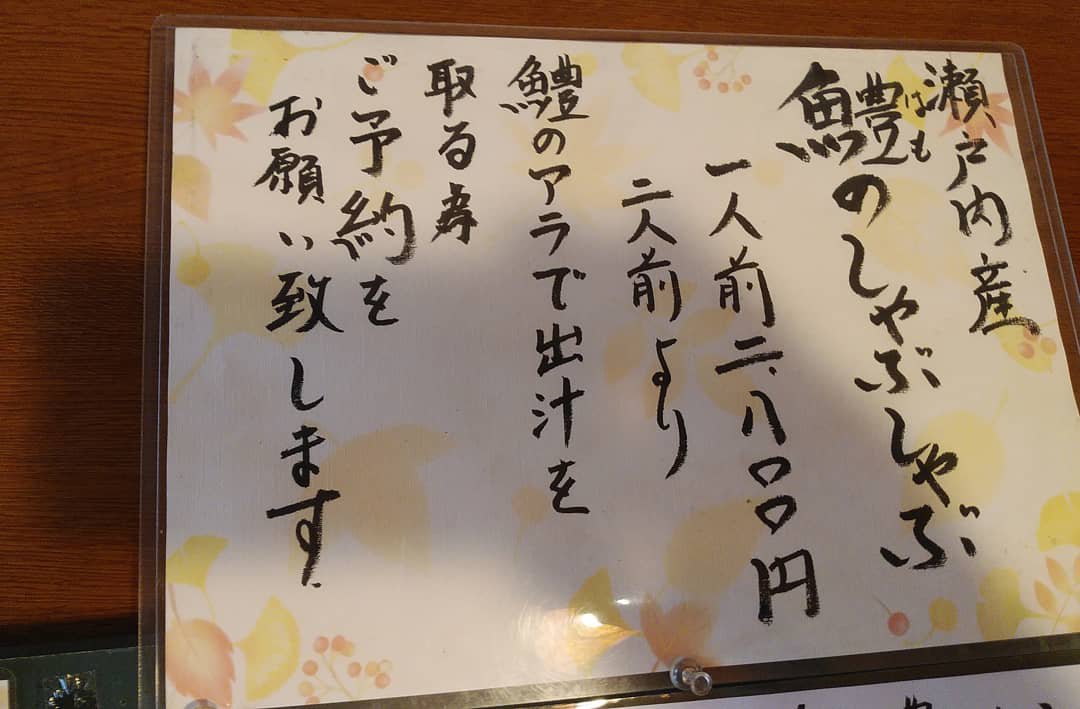 瀬戸内産
鱧のしゃぶしゃぶ
はも
一人前二.八〇〇円
二人前より
鱧のアラで出汁を
取る為
ご予約を
お願い致します.